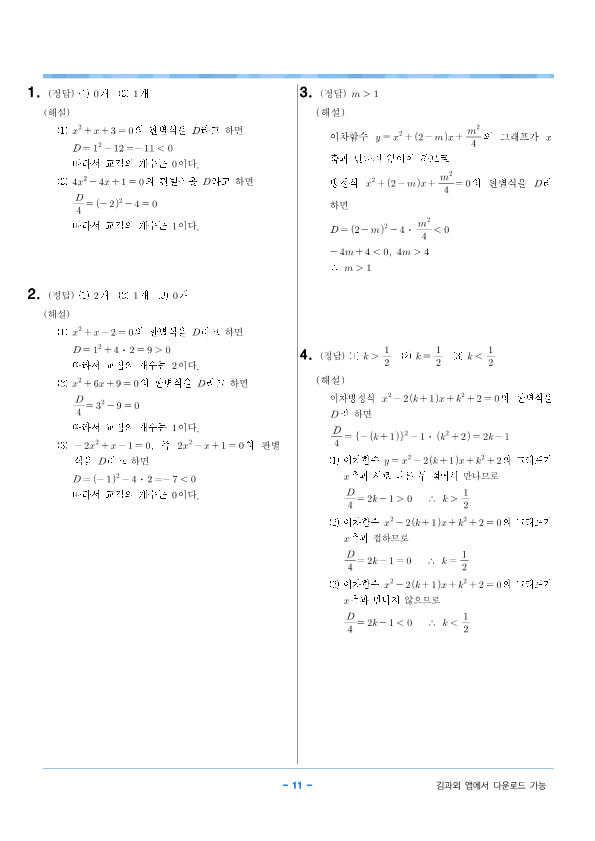 1. (정답) (1) 0개 (2) 1개
(해설)
(1) x²+x+3=0의 판별식을 D라고 하면
D=1²-12=-11<0
따라서 교점의 개수는 0이다.
(2) 4x²-4x+1=0의 판별식을 D라고 하면
D/4=(-2)²-4=0
따라서 교점의 개수는 1이다.
2. (정답) (1) 2개 (2) 1개 (3) 0개
(해설)
(1) x²+x-2=0의 판별식을 D라고 하면
D=1²+4·2=9>0
따라서 교점의 개수는 2이다.
(2) x²+6x+9=0의 판별식을 D라고 하면
D/4=3²-9=0
따라서 교점의 개수는 1이다.
(3) -2x²+x-1=0, 즉 2x²-x+1=0의 판별
식을 D라고 하면
D=(-1)²-4·2=-7<0
따라서 교점의 개수는 0이다.
3. (정답) m>1
(해설)
이차함수 y=x²+(2-m)x+m²/4의 그래프가 x
축과 만나지 않아야 하므로
방정식 x²+(2-m)x+m²/4=0의 판별식을 D라
하면
D=(2-m)²-4·m²/4<0
-4m+4<0, 4m>4
∴ m>1
4. (정답) (1) k>1/2 (2) k=1/2 (3) k<1/2
(해설)
이차방정식 x²-2(k+1)x+k²+2=0의 판별식을
D라 하면
D/4={-(k+1)}²-1·(k²+2)=2k-1
(1) 이차함수 y=x²-2(k+1)x+k²+2의 그래프가
x축과 서로 다른 두 점에서 만나므로
D/4=2k-1>0 ∴ k>1/2
(2) 이차함수 x²-2(k+1)x+k²+2=0의 그래프가
x축과 접하므로
D/4=2k-1=0 ∴ k=1/2
(3) 이차함수 x²-2(k+1)x+k²+2=0의 그래프가
x축과 만나지 않으므로
D/4=2k-1<0 ∴ k<1/2
- 11 -
김과외 앱에서 다운로드 가능